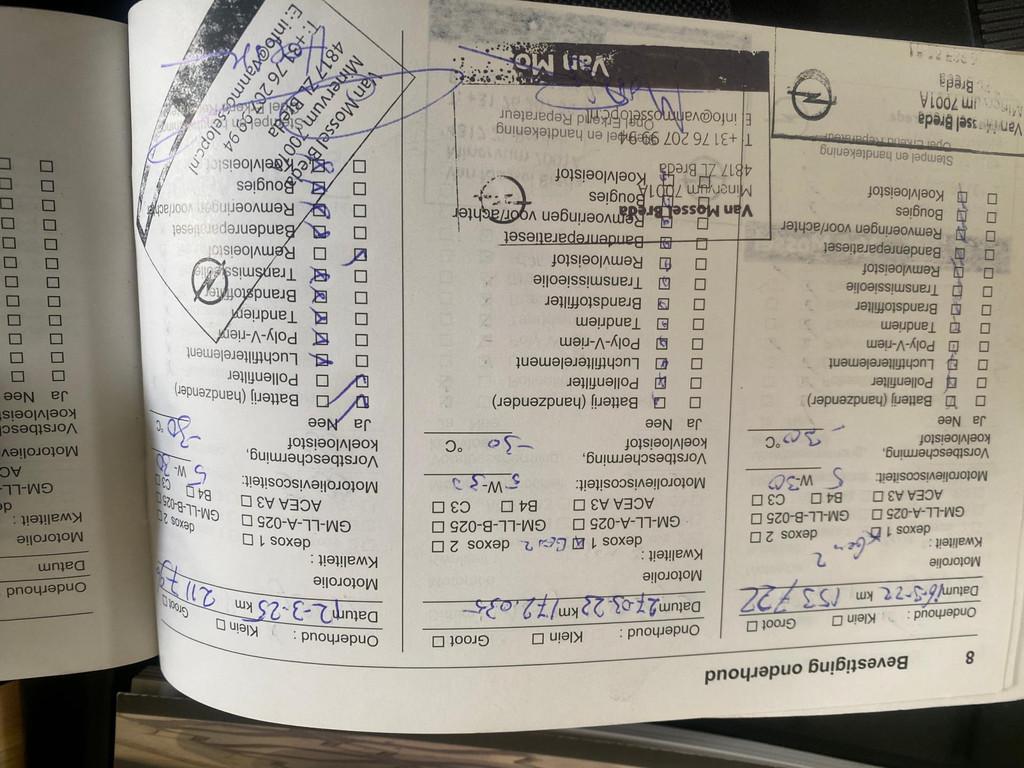 8 Bevestiging onderhoud
Onderhoud : Klein Groot
Datum 16-5-22 153722 km
Motorolie
Kwaliteit :
dexos 1 Gen 2 dexos 2
GM-LL-A-025 GM-LL-B-025
ACEA A3 B4 C3
Motorolieviscositeit: 5 W-30
Vorstbescherming,
koelvloeistof -30 °C
Ja Nee
Batterij (handzender)
Pollenfilter
Luchtfilterelement
Poly-V-riem
Tandriem
Brandstoffilter
Transmissieolie
Remvloeistof
Bandenreparatieset
Remvoeringen voor/achter
Bougies
Koelvloeistof
Stempel en handtekening
Opel Erkend Reparateur
Van Mossel Breda
7001A
Breda
Onderhoud : Klein Groot
Datum 27-03-23 172.035 km
Motorolie
Kwaliteit :
dexos 1 Gen 2 dexos 2
GM-LL-A-025 GM-LL-B-025
ACEA A3 B4 C3
Motorolieviscositeit: 5 W-30
Vorstbescherming,
koelvloeistof -30 °C
Ja Nee
Batterij (handzender)
Pollenfilter
Luchtfilterelement
Poly-V-riem
Tandriem
Brandstoffilter
Transmissieolie
Remvloeistof
Bandenreparatieset
Remvoeringen voor/achter
Bougies
Koelvloeistof
Stempel en handtekening
Opel Erkend Reparateur
Van Mossel Breda
Minervum 7001A
4817 ZL Breda
T +31 76 207 99 94
E info@vanmosselopc.nl
Van Mo
Onderhoud : Klein Groot
Datum 12-3-25 km
Motorolie
Kwaliteit :
dexos 1 dexos 2
GM-LL-A-025 GM-LL-B-025
ACEA A3 B4 C3
Motorolieviscositeit: 5 W-30
Vorstbescherming,
koelvloeistof -30 °C
Ja Nee
Batterij (handzender)
Pollenfilter
Luchtfilterelement
Poly-V-riem
Tandriem
Brandstoffilter
Transmissieolie
Remvloeistof
Bandenreparatieset
Remvoeringen voor/achter
Bougies
Koelvloeistof
Van Mossel Breda
Minervum 7001a
4817 ZL Breda
T: +31 76 207 99 94
E: info@vanmosselopc.nl
Onderhoud
Datum
Motorolie
Kwaliteit :
GM-LL
Ja Nee